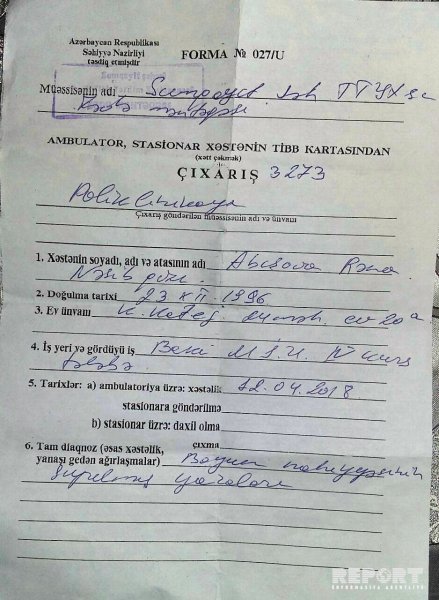 Azərbaycan Respublikası
Səhiyyə Nazirliyi
təsdiq etmişdir
FORMA № 027/U
Müəssisənin adı Sumqayıt
AMBULATOR, STASIONAR XƏSTƏNİN TİBB KARTASINDAN
(xətt çəkmək)
ÇIXARIŞ 3273
Poliklinikaya
Çıxarış göndərilən müəssisənin adı və ünvanı
1. Xəstənin soyadı, adı və atasının adı Abışova Rəna
Nəsib qızı
2. Doğulma tarixi 23 XII 1996
3. Ev ünvanı ev 20a
4. İş yeri və gördüyü iş Bakı IV kurs
tələbə
5. Tarixlər: a) ambulatoriya üzrə: xəstəlik 12.04.2018
stasionara göndərilmə
b) stasionar üzrə: daxil olma
çıxma
6. Tam diaqnoz (əsas xəstəlik,
yanaşı gedən ağırlaşmalar) Boyun nahiyyəsinin
sıyrılmış yaraları
REPORT
İNFORMASİYA AGENTLİYİ